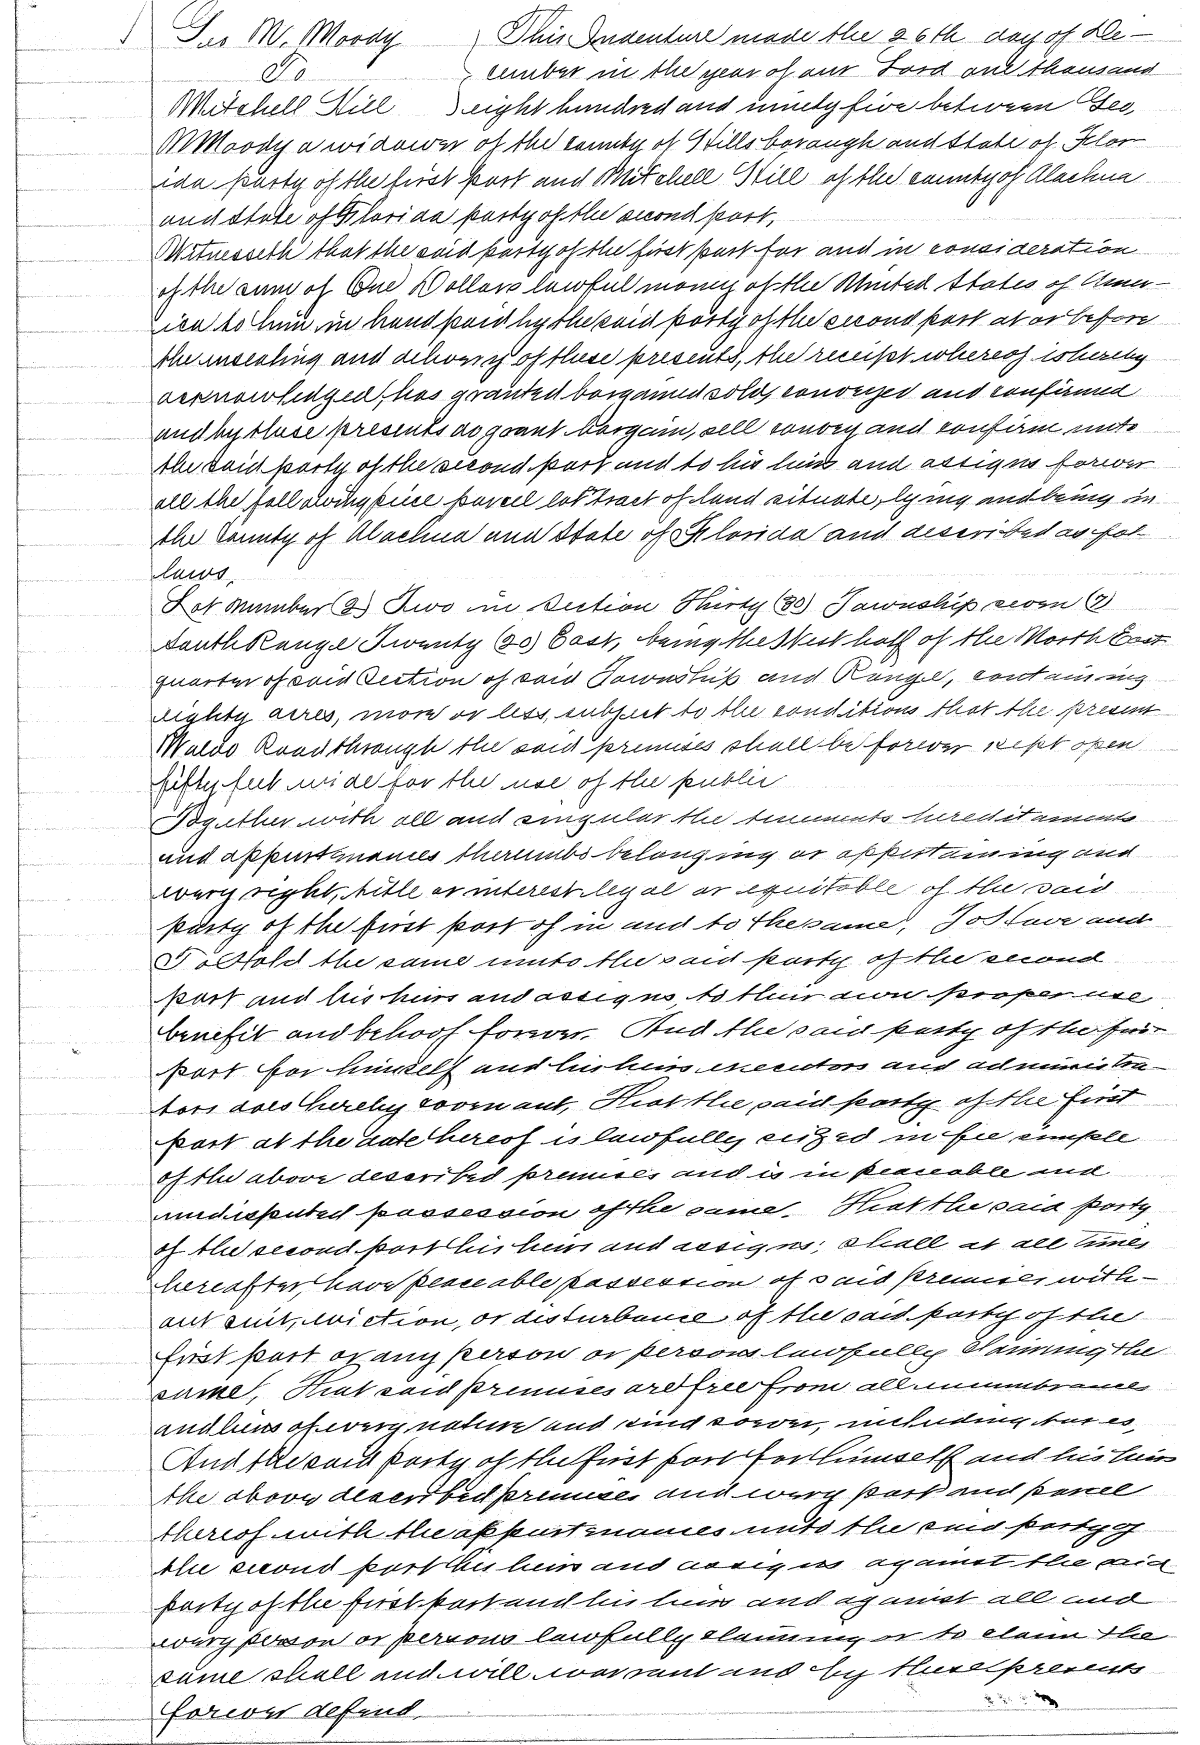 Geo M. Moody
To
Mitchell Hill
This Indenture made the 26th day of De-
cember in the year of our Lord one thousand
eight hundred and ninety five between Geo,
M Moody a widower of the county of Hillsborough and State of Flor
ida party of the first part and Mitchell Hill of the county of Alachua
and State of Florida party of the second part,
Witnesseth that the said party of the first part for and in consideration
of the sum of One Dollars lawful money of the United States of Amer-
ica to him in hand paid by the said party of the second part at or before
the ensealing and delivery of these presents, the receipt whereof is hereby
acknowledged, has granted bargained sold, conveyed and confirmed
and by these presents do grant bargain, sell convey and confirm unto
the said party of the second part and to his heirs and assigns forever
all the following piece parcel lot tract of land situate, lying and being in
the County of Alachua and State of Florida and described as fol-
lows,
Lot number (2) Two in Section Thirty (30) Township seven (7)
South Range Twenty (20) East, being the West half of the North East
quarter of said Section of said Township and Range, containing
eighty acres, more or less, subject to the conditions that the present
Waldo Road through the said premises shall be forever kept open
fifty feet wide for the use of the public
Together with all and singular the tenements hereditaments
and appurtenances thereunto belonging or appertaining and
every right, title or interest legal or equitable of the said
party of the first part of in and to the same, To Have and
To Hold the same unto the said party of the second
part and his heirs and assigns, to their own proper use
benefit and behoof forever. And the said party of the firs
part for himself and his heirs executors and administra-
tors does hereby covenant, That the said party of the first
part at the date hereof is lawfully seized in fee simple
of the above described premises and is in peaceable and
undisputed possession of the same. That the said party
of the second part his heirs and assigns, shall at all times
hereafter, have peaceable possession of said premises with-
out suit, eviction, or disturbance of the said party of the
first part or any person or persons lawfully claiming the
same, That said premises are free from all incumbrances
and liens of every nature and kind soever, including taxes,
And the said party of the first part for himself and his heirs
the above described premises and every part and parcel
thereof with the appurtenances unto the said party of
the second part his heirs and assigns against the said
party of the first part and his heirs and against all and
every person or persons lawfully claiming or to claim the
same shall and will warrant and by these presents
forever defend.